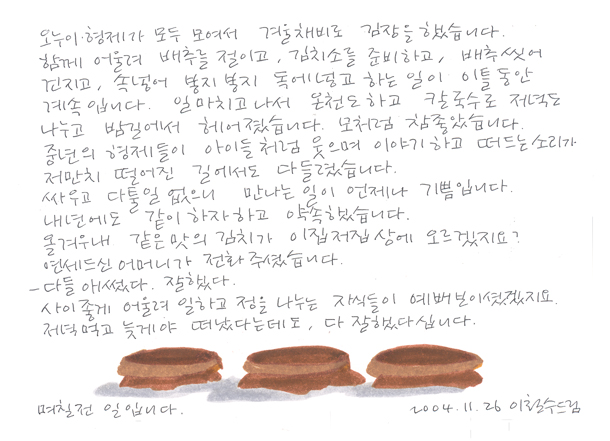 오누이·형제가 모두 모여서 겨울채비로 김장을 했습니다.
함께 어울려 배추를 절이고, 김치소를 준비하고, 배추 씻어
건지고, 속넣어 봉지봉지 독에 넣고 하는 일이 이틀동안
계속입니다. 일 마치고 나서 온천도 하고 칼국수로 저녁도
나누고 밤길에서 헤어졌습니다. 모처럼 참 좋았습니다.
중년의 형제들이 아이들처럼 웃으며 이야기하고 떠드는 소리가
저만치 떨어진 길에서도 다 들렸습니다.
싸우고 다툴일 없으니 만나는 일이 언제나 기쁨입니다.
내년에도 같이 하자 하고 약속했습니다.
올겨우내 같은 맛의 김치가 이집저집 상에 오르겠지요?
연세드신 어머니가 전화 주셨습니다.
- 다들 애썼다. 잘했다.
사이좋게 어울려 일하고 정을 나누는 자식들이 예뻐보이셨겠지요.
저녁먹고 늦게야 떠났다는데도, 다 잘했다십니다.
며칠전 일입니다. 2004.11.26 이철수드림